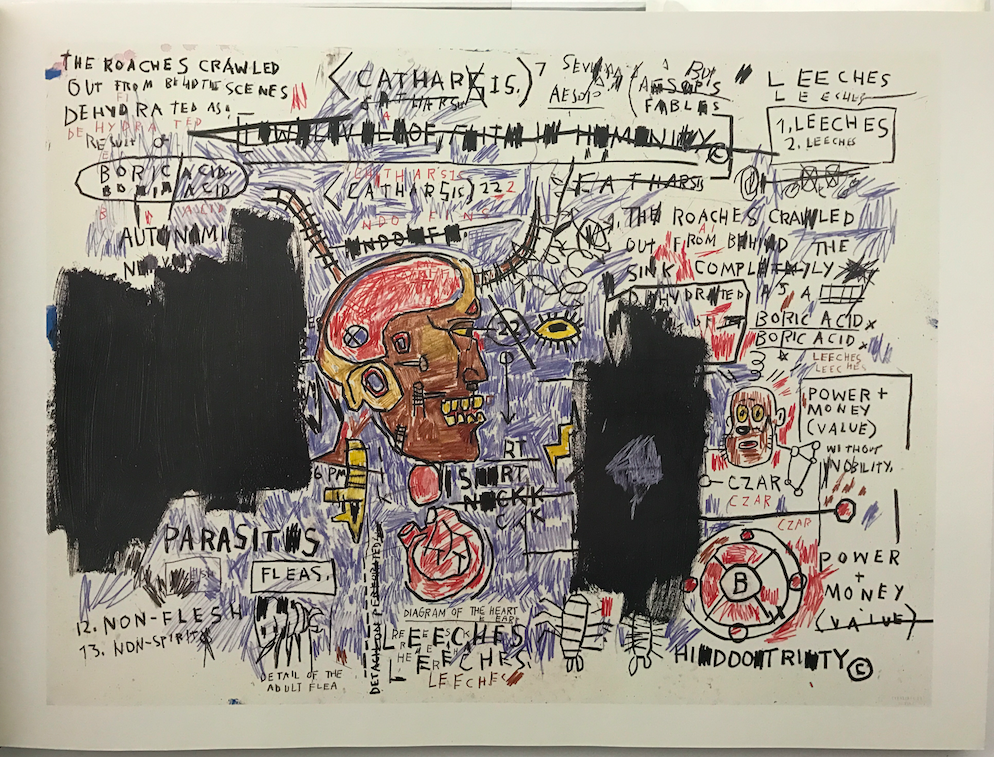 THE ROACHES CRAWLED
OUT FROM BEHIND THE SCENES
DEHYDRATED AS A
DEHYDRATED
RESULT OF
BORIC ACID
ACID
AUTONOMI
(CATHARSIS.) 7
CATHARSIS
AESOP
AESOP'S
FABLES
LEECHES
LEECHES
1, LEECHES
2. LEECHES
LOW LEVEL OF FAITH IN HUMANITY ©
CATHARSIS
(CATHARSIS) 22 2
CATHARSIS
THE ROACHES CRAWLED
OUT FROM BEHIND THE
SINK COMPLETELY
DEHYDRATED AS A
BORIC ACID x
BORIC ACID x
LEECHES
LEECHES
22
POWER +
MONEY
(VALUE)
WITHOUT
NOBILITY,
CZAR
CZAR
CZAR
6 PM
RT
SHORT
PARASITES
FLEAS.
12. NON-FLESH
13. NON-SPIRIT
DETAIL OF THE
ADULT FLEA
DIAGRAM OF THE HEART
LEECHES
LEECHES.
LEECHES
B
POWER
+
MONEY
(VALUE)
HINDOO TRINITY ©